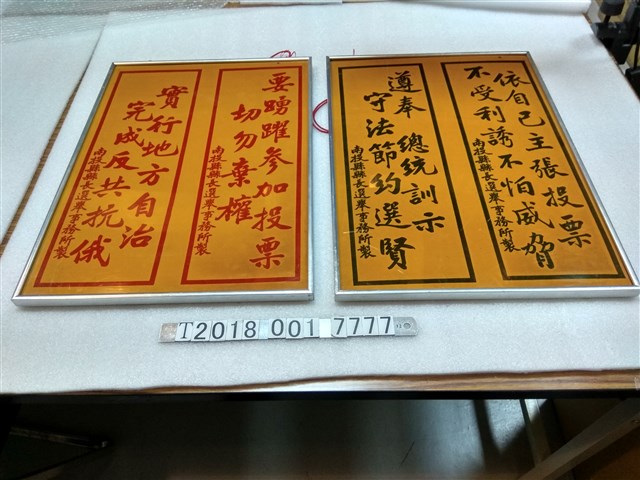 要踴躍參加投票
切勿棄權
南投縣縣長選舉事務所製
實行地方自治
完成反共抗俄
南投縣縣長選舉事務所製
依自己主張投票
不受利誘不怕威脅
南投縣縣長選舉事務所製
遵奉 總統訓示
守法節約選賢
南投縣縣長選舉事務所製
T2018 001 7777